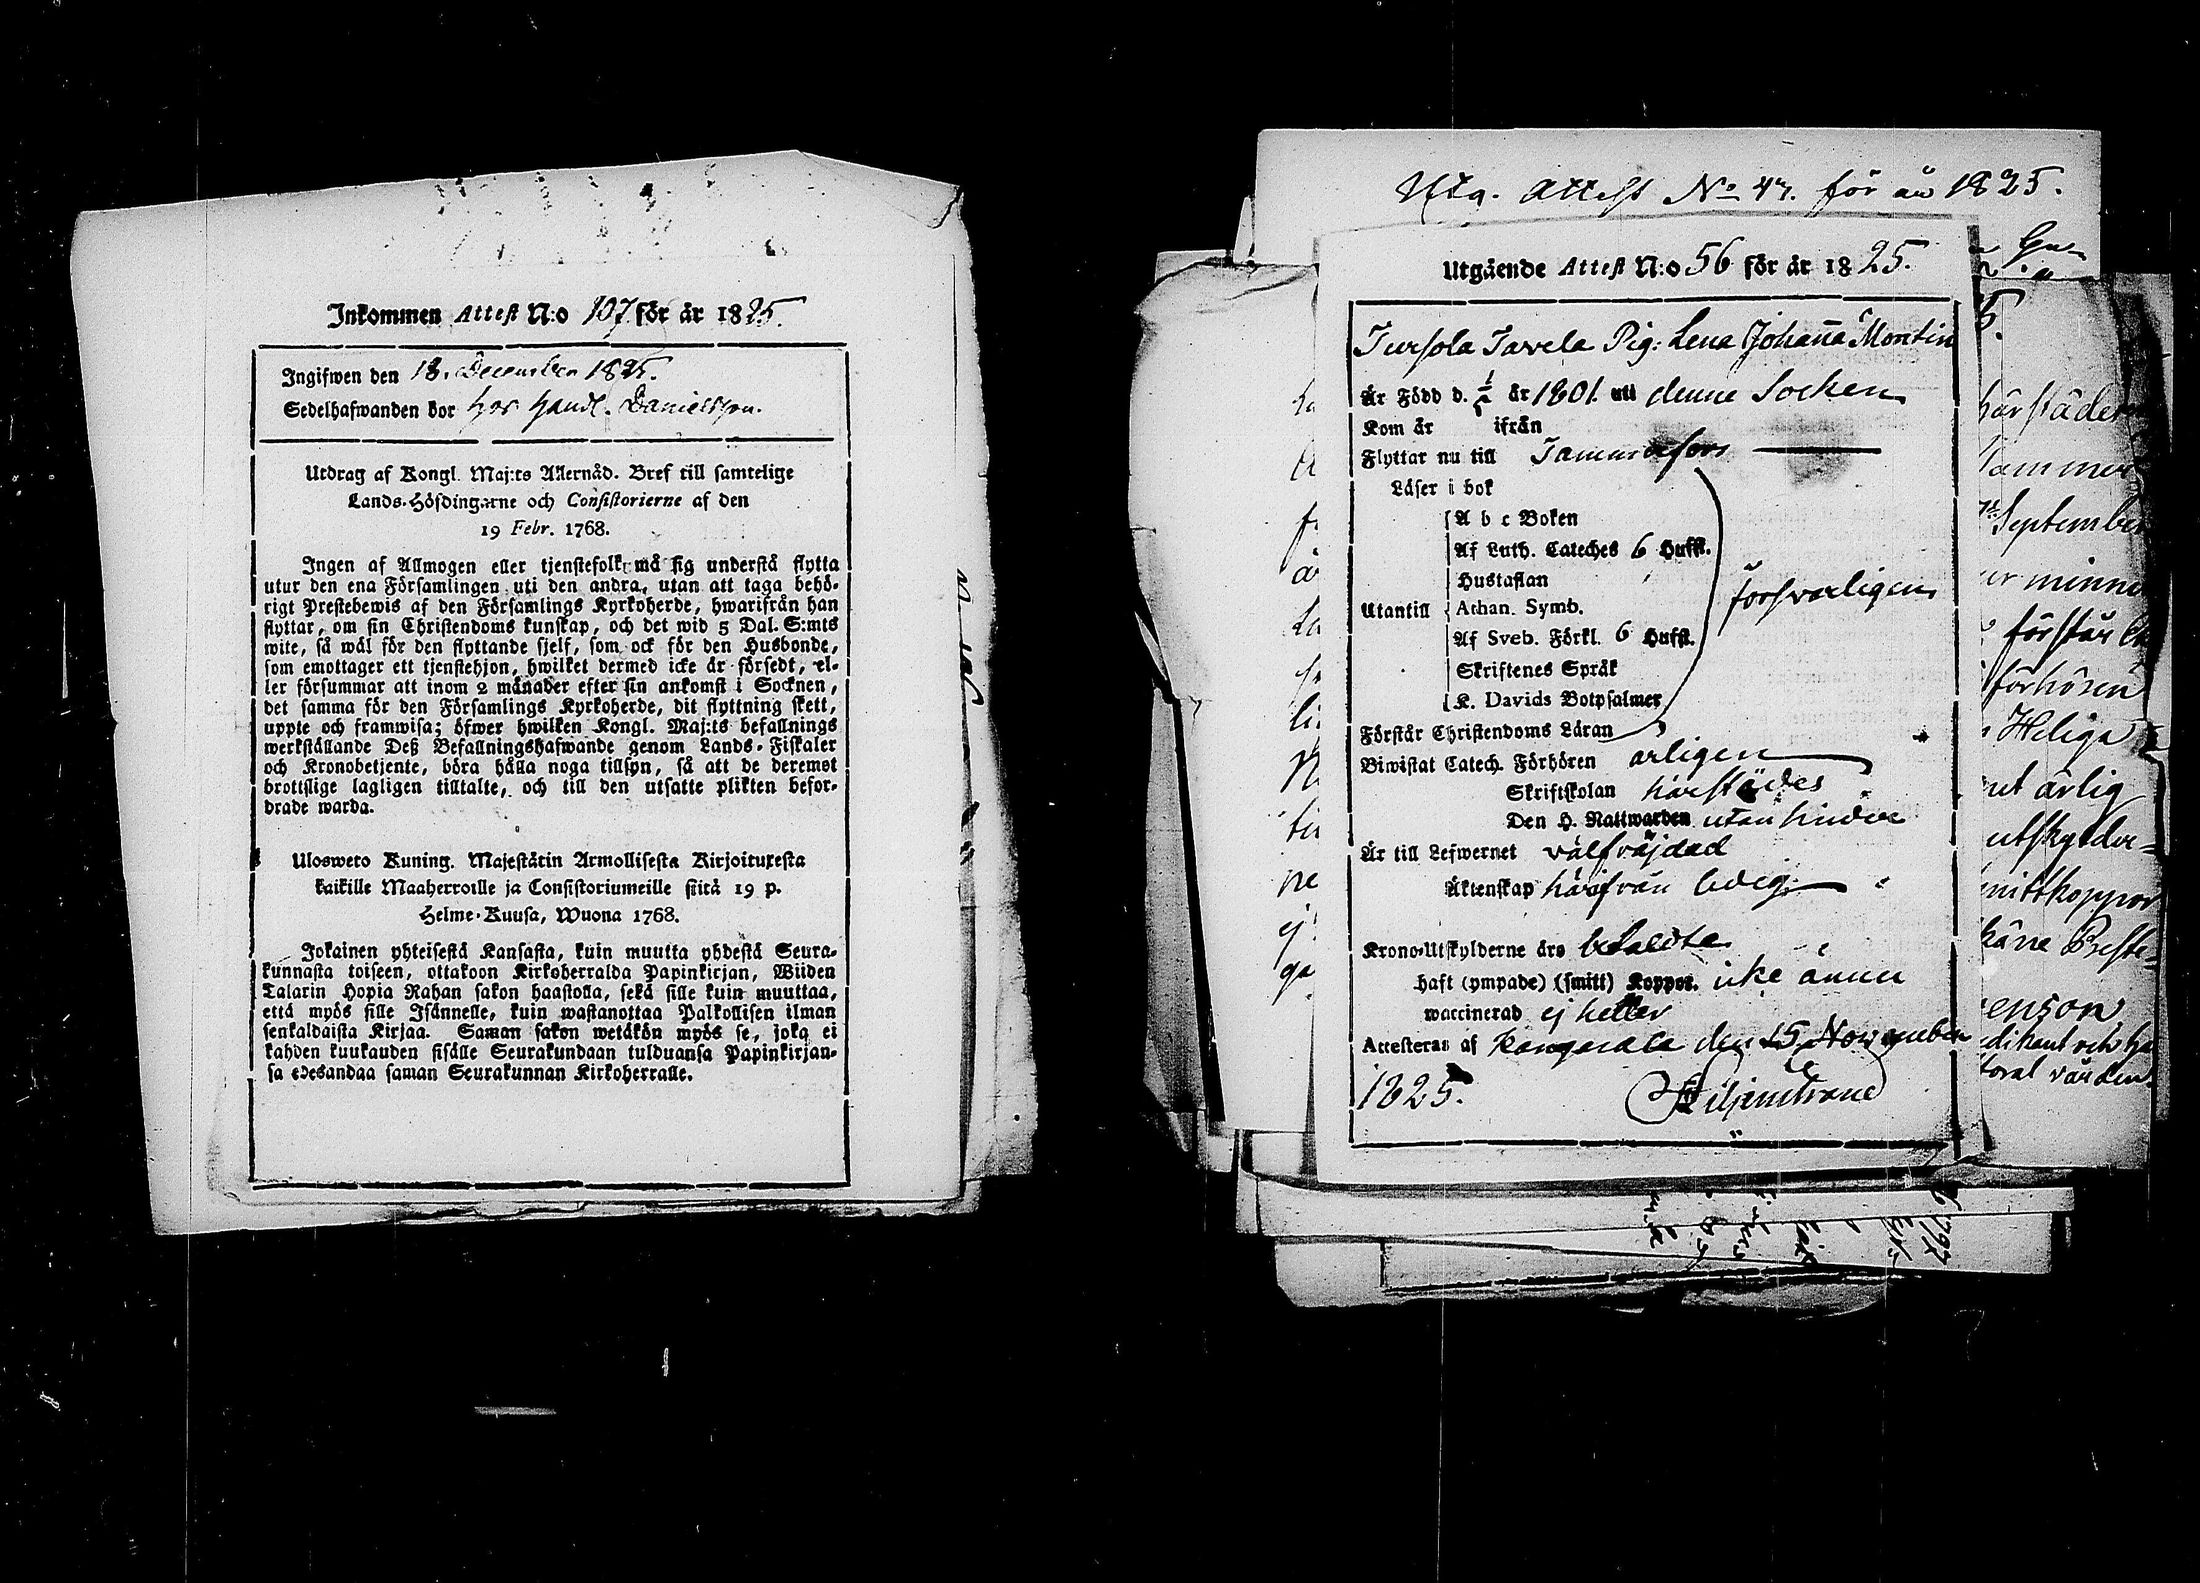 Inkommen Attest N:o 107 för år 1825.
Ingifwen den 18. December 1825.
Sedelhafwanden bor hos Handl. Danielsson.
Utdrag af Kongl. Maj:ts Allernåd. Bref till samtelige
Lands-Höfdingarne och Consistorierne af den
19 Febr. 1768.
Ingen af Allmogen eller tjenstefolk må sig understå flytta
utur den ena Församlingen uti den andra, utan att taga behö-
rigt Prestebewis af den Församlings Kyrkoherde, hwarifrån han
flyttar, om sin Christendoms kunskap, och det wid 5 Dal. S:mts
wite, så wäl för den flyttande sjelf, som ock för den Husbonde,
som emottager ett tjenstehjon, hwilket dermed icke är försedt, el-
ler försummar att inom 2 månader efter sin ankomst i Socknen,
det samma för den Församlings Kyrkoherde, dit flyttning skett,
uppte och framwisa; öfwer hwilken Kongl. Maj:ts befallnings
werkställande Deß Befallningshafwande genom Lands-Fiskaler
och Kronobetjente, böra hålla noga tillsyn, så att de deremot
brottslige lagligen tilltalte, och till den utsatte plikten befor-
drade warda.
Ulosweto Kuning. Majestätin Armollisesta Kirjoituxesta
kaikille Maaherroille ja Consistoriumeille siitä 19 p.
Helme-Kuusa, Wuona 1768.
Jokainen yhteisestä Kansasta, kuin muutta yhdestä Seura-
kunnasta toiseen, ottakoon Kirkoherralda Papinkirjan, Wiiden
Talarin Hopia Rahan sakon haastolla, sekä sille kuin muuttaa,
että myös sille Isännelle, kuin wastanottaa Palkollisen ilman
senkaldaista Kirjaa. Saman sakon wetäkön myös se, joka ei
kahden kuukauden sisälle Seurakundaan tulduansa Papinkirjan-
sa edesandaa saman Seurakunnan Kirkoherralle.
Utg. Attest No 47. för år 1825.
Utgående Attest N:o 56 för år 1825.
Tursola Tavela Pig: Lena Johanna Montin
Är Född d. år 1801. uti denne Socken
Kom år ifrån
Flyttar nu till Tammerfors
Läser i bok
A b c Boken
Af Luth. Cateches 6 Hufst.
Hustaflan
Utantill Athan. Symb. försvarligen
Af Sveb. Förkl. 6 Hufst.
Skriftenes Språk
K. Davids Botpsalmer
Förstår Christendoms Läran
Biwistat Catech. Förhören årligen
Skriftskolan härstädes
Den H. Nattwarden utan hinder
Är till Lefwernet välfräjdad
Äktenskap härifrån ledig
Krono-Utskylderne äro betaldte
haft (ympade) (smitt) Koppor. icke ännu
waccinerad ej heller
Attesteras af Kangasala den 15 November
1825. Liljenstrand
härstädes
Tammer
September
minne
förstår
förhören
Heliga
årlig
utskylder=
smittkoppor
Preste=